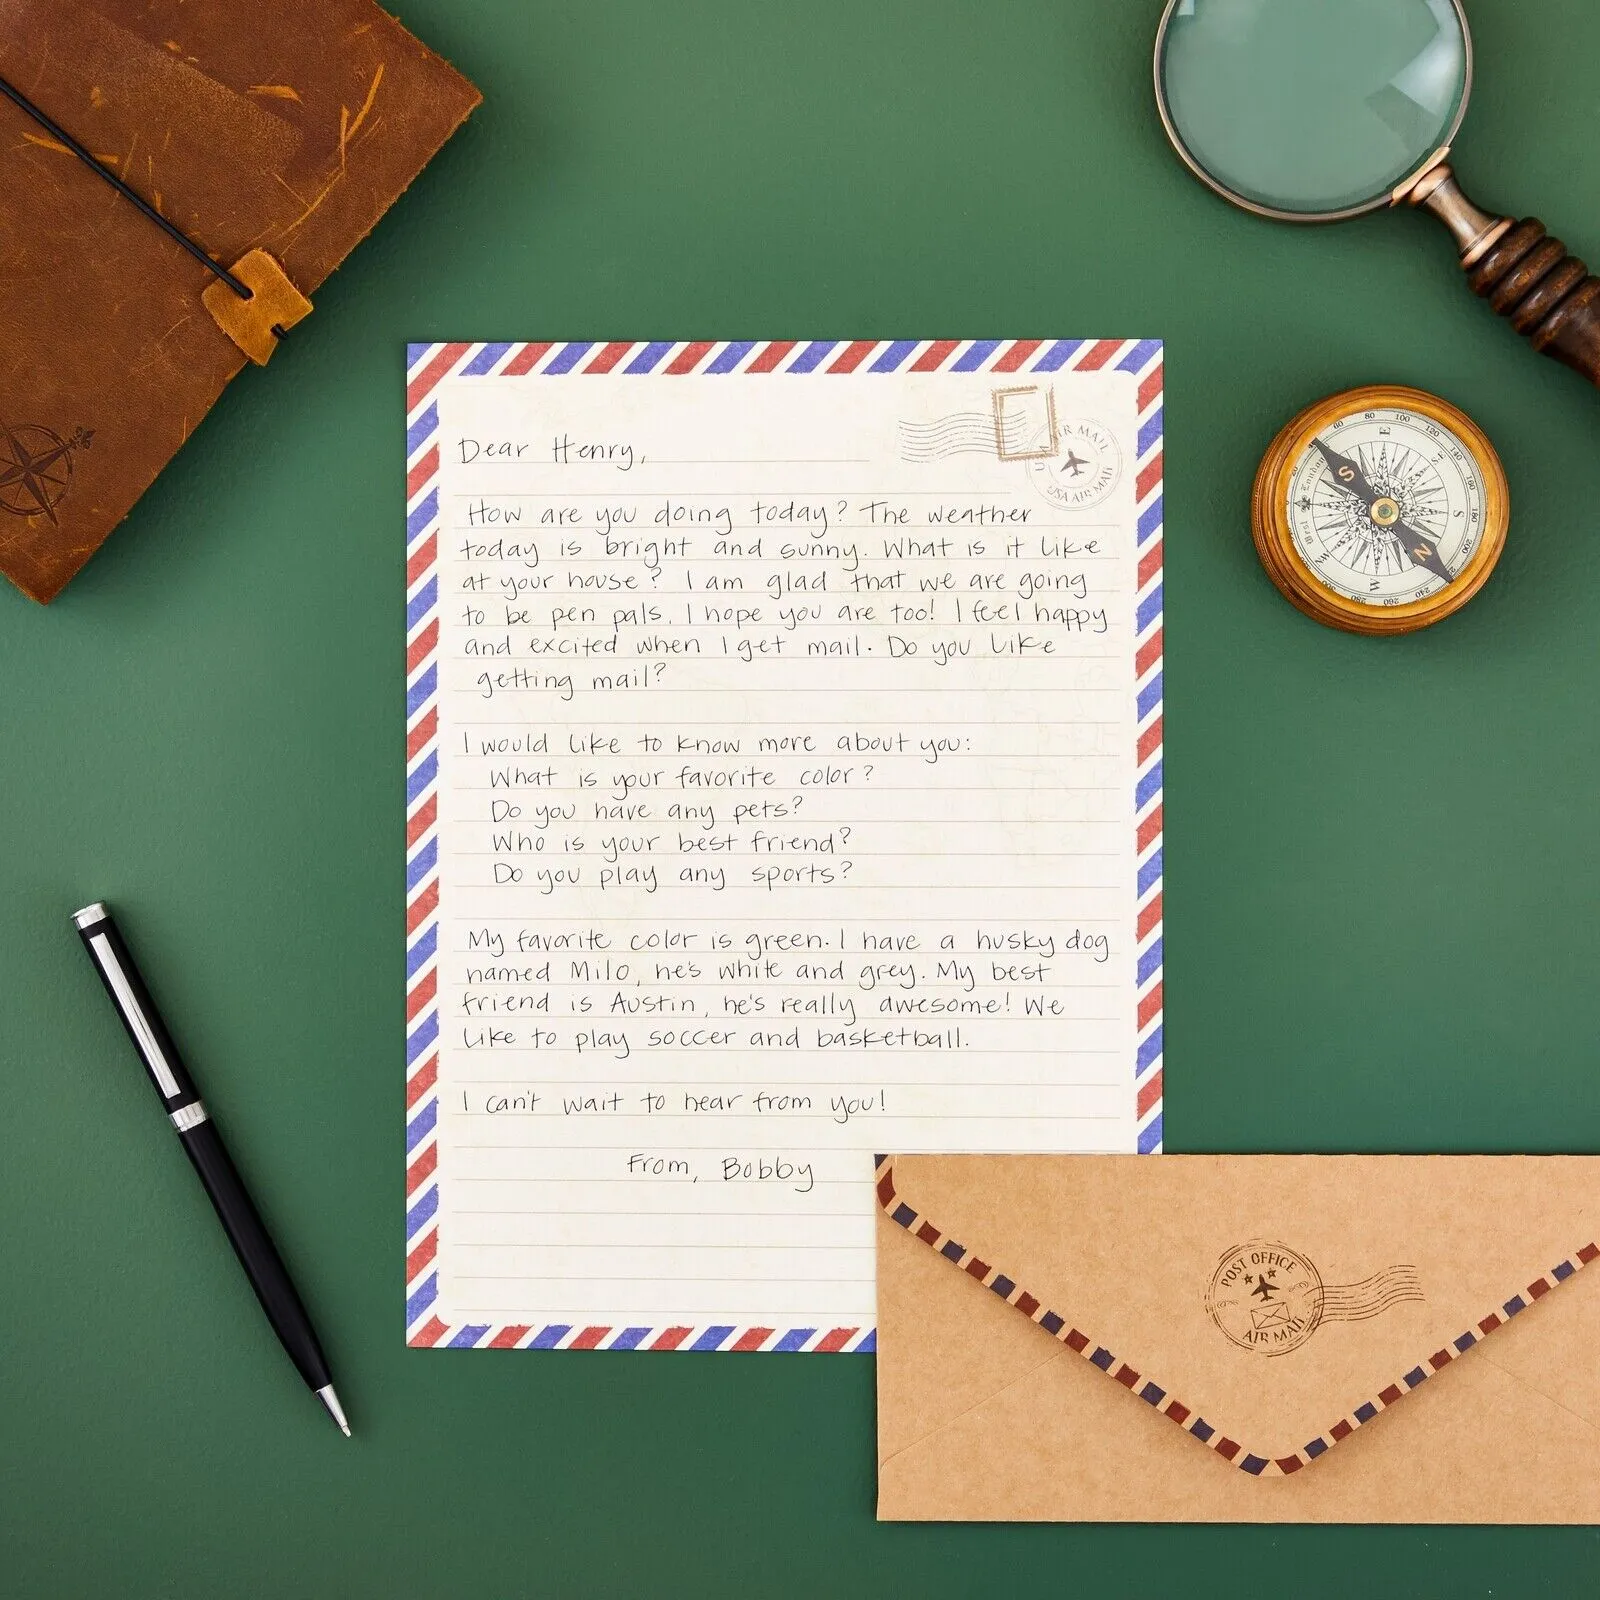 Dear Henry,
USA AIR MAIL
USA AIR MAIL
How are you doing today? The weather
today is bright and sunny. What is it like
at your house? I am glad that we are going
to be pen pals. I hope you are too! I feel happy
and excited when I get mail. Do you like
getting mail?
I would like to know more about you:
What is your favorite color?
Do you have any pets?
Who is your best friend?
Do you play any sports?
My favorite color is green. I have a husky dog
named Milo, he's white and grey. My best
friend is Austin, he's really awesome! We
like to play soccer and basketball.
I can't wait to hear from you!
From, Bobby
POST OFFICE
AIR MAIL
80 100 120 140 160 180 200
240 260 280
E
S
W
NW
S
N